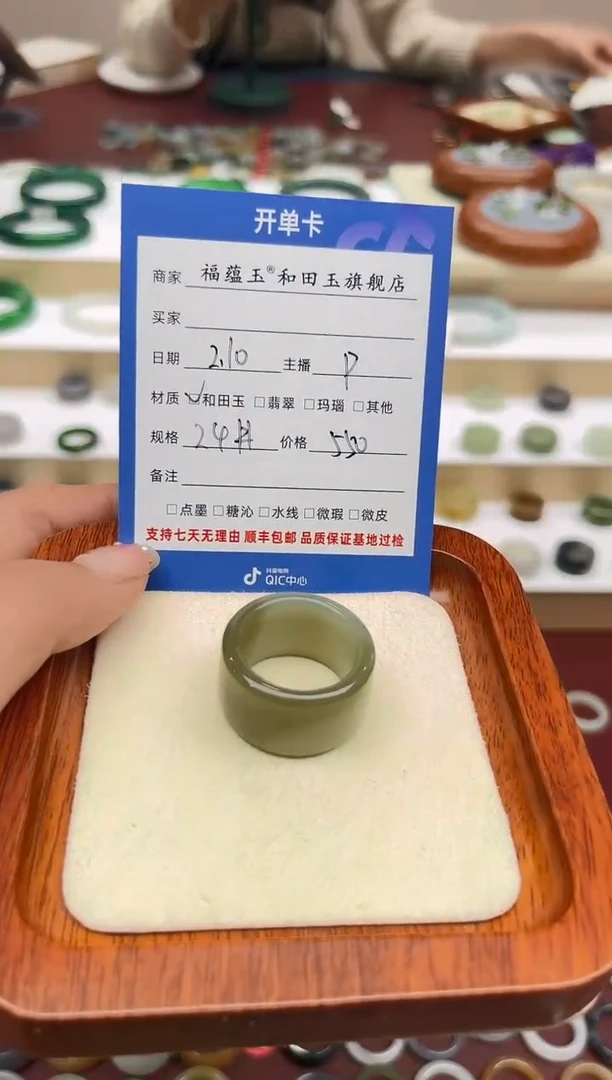 开单卡
商家 福蕴玉®和田玉旗舰店
买家
日期 2.10 主播 P
材质 ☑和田玉 □翡翠 □玛瑙 □其他
规格 24# 价格 530
备注
□点墨 □糖沁 □水线 □微瑕 □微皮
支持七天无理由 顺丰包邮 品质保证基地过检
抖音电商
QIC中心